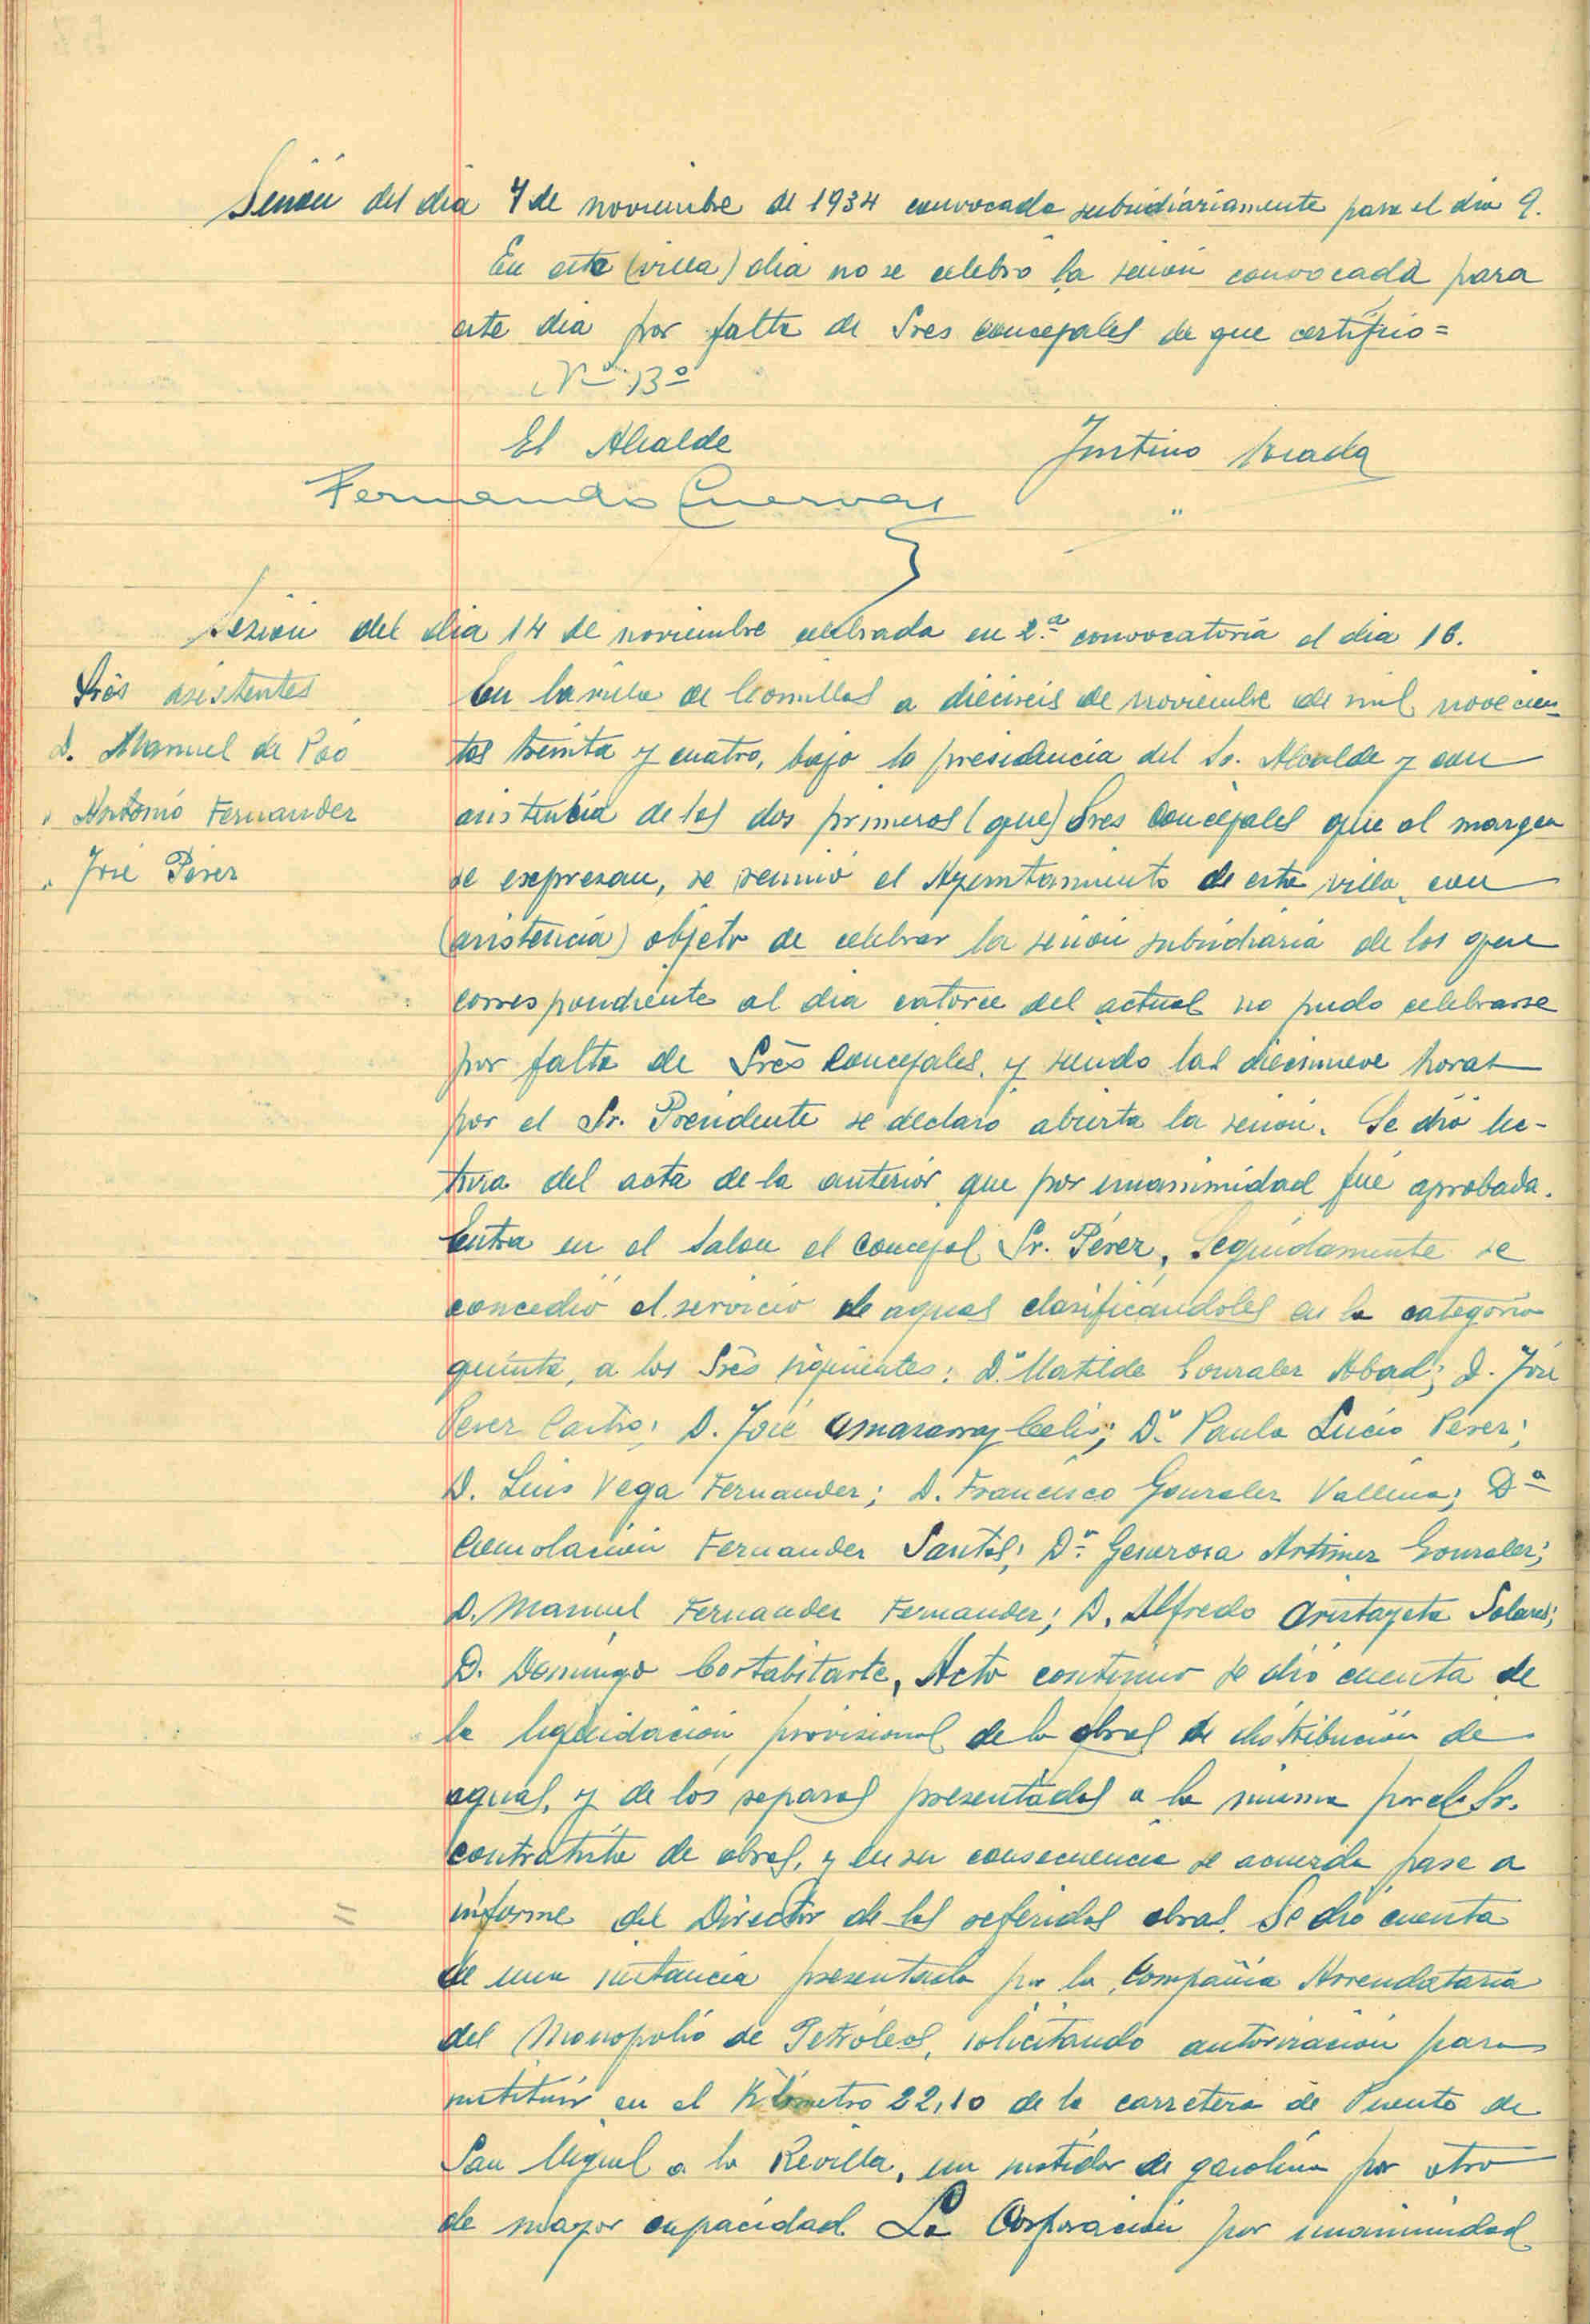 Sesión del día 7 de noviembre de 1934 convocada subsidiariamente para el día 9.
En este (villa) día no se celebró la sesión convocada para
este día por falta de Sres concejales de que certifico=
Vº Bº
El Alcalde
Justino
Fernando Cuevas
Sesión del día 14 de noviembre celebrada en 2.ª convocatoria el día 16.
Srēs asistentes
D. Manuel de Poo
" Antonio Fernandez
" José Pérez
En la villa de Comillas a dieciseis de noviembre de mil novecien-
tos treinta y cuatro, bajo la presidencia del Sr. Alcalde y con
asistencia de los dos primeros (que) Sres Concejales que al margen
se expresan, se reunió el Ayuntamiento de esta villa, con
(asistencia) objeto de celebrar la sesión subsidiaria de los que
correspondiente al día catorce del actual no pudo celebrarse
por falta de Srēs Concejales, y siendo las diecinueve horas
por el Sr. Presidente se declaró abierta la sesión. Se dió lec-
tura del acta de la anterior que por unanimidad fué aprobada.
Entra en el Salon el Concejal Sr. Pérez. Seguidamente se
concedió el servicio de aguas clasificándoles en la categoría
quinta, a los Srēs siguientes: Dª Matilde Gonzalez Abad; D. José
Perez Castro; D. José Amararray Celis; Dª Paula Lucio Perez;
D. Luis Vega Fernandez; D. Francisco Gonzalez Vallina; Dª
Consolación Fernandez Santos; Dª Generosa Artimez Gonzalez;
D. Manuel Fernandez Fernandez; D. Alfredo Aristayeta Solares;
D. Domingo Cortabitarte. Acto continuo se dió cuenta de
la liquidación provisional de la obras de distribución de
aguas, y de los reparos presentados a la misma por el Sr.
contratista de obras, y en su consecuencia se acuerda pase a
informe del Director de las referidas obras. Se dió cuenta
de una instancia presentada por la Compañía Arrendataria
del Monopolio de Petróleos, solicitando autorización para
sustituir en el Kilómetro 22,10 de la carretera de Puente de
San Miguel a la Revilla, un surtidor de gasolina por otro
de mayor capacidad. La Corporación por unanimidad